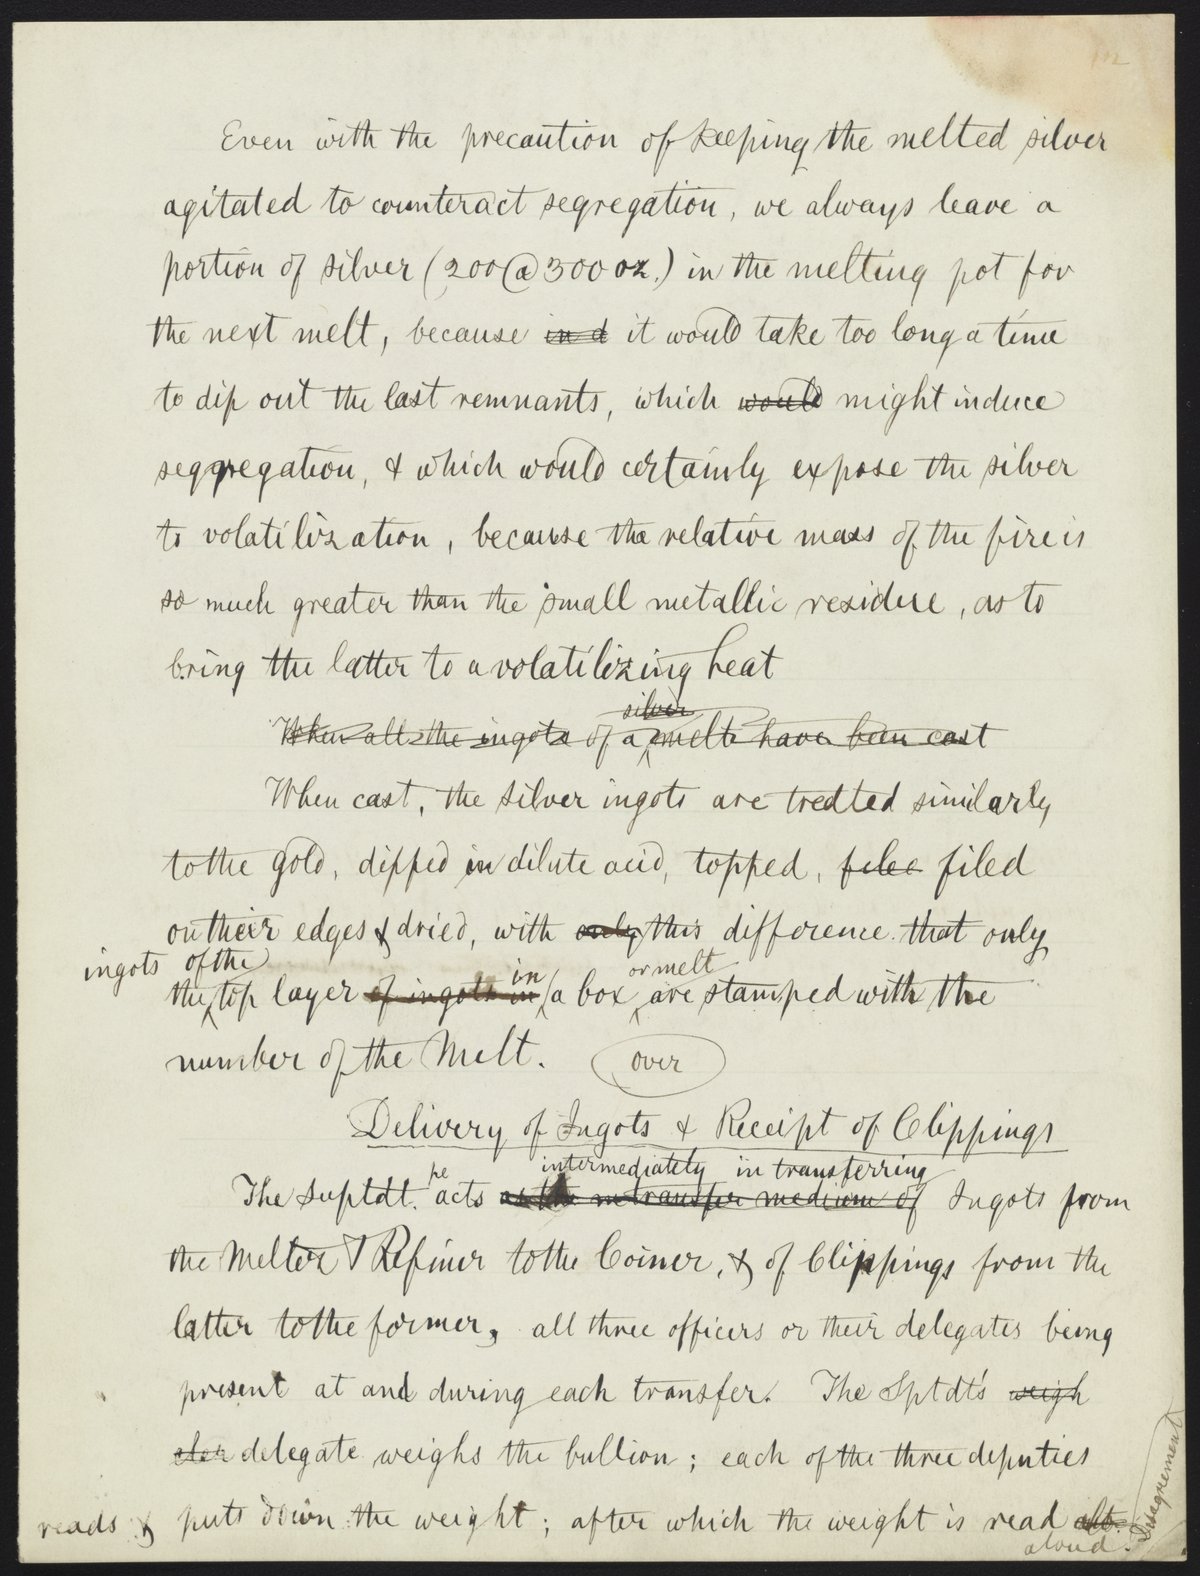 Even with the precaution of keeping the melted silver
agitated to counteract segregation, we always leave a
portion of silver (200 @ 300 oz.) in the melting pot for
the next melt, because in d it would take too long a time
to dip out the last remnants, which would might induce
seggregation, & which would certainly expose the silver
to volatilization, because the relative mass of the fire is
so much greater than the small metallic residue, as to
bring the latter to a volatilizing heat
silver
When all the ingots of a melt have been cast
When cast, the silver ingots are treated similarly
to the gold, dipped in dilute acid, topped, filee filed
on their edges & dried, with only this difference that only
ingots of the in or melt
the top layer of ingots in a box are stamped with the
number of the Melt. over
Delivery of Ingots & Receipt of Clippings
he intermediately in transferring
The Suptdt. acts as the transfer medium of Ingots from
the Melter & Refiner to the Coiner, & of Clippings from the
latter to the former, all three officers or their delegates being
present at and during each transfer. The Sptdt's weigh
delegate weighs the bullion; each of the three deputies
reads & puts down the weight; after which the weight is read alt.
aloud.
Disagreement